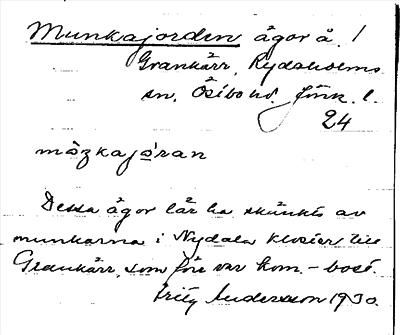 Munkajorden ägor å /
Grankärr, Rydaholms
sn, Östbo hd. Jönk. l.
24
måzkajo̱ran
Dessa ägor lär ha skänkts av
munkarna i Nydala kloster till
Grankärr, som förr var kom.-bost.
Fritz Andersson 1930.